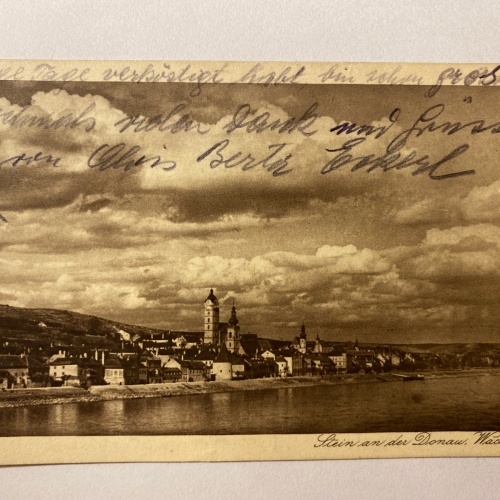 Tage verköstigt habt bin schon
nochmals vielen Dank und Grüsse
von Alois Berta Eckerl
Stein an der Donau. Wac